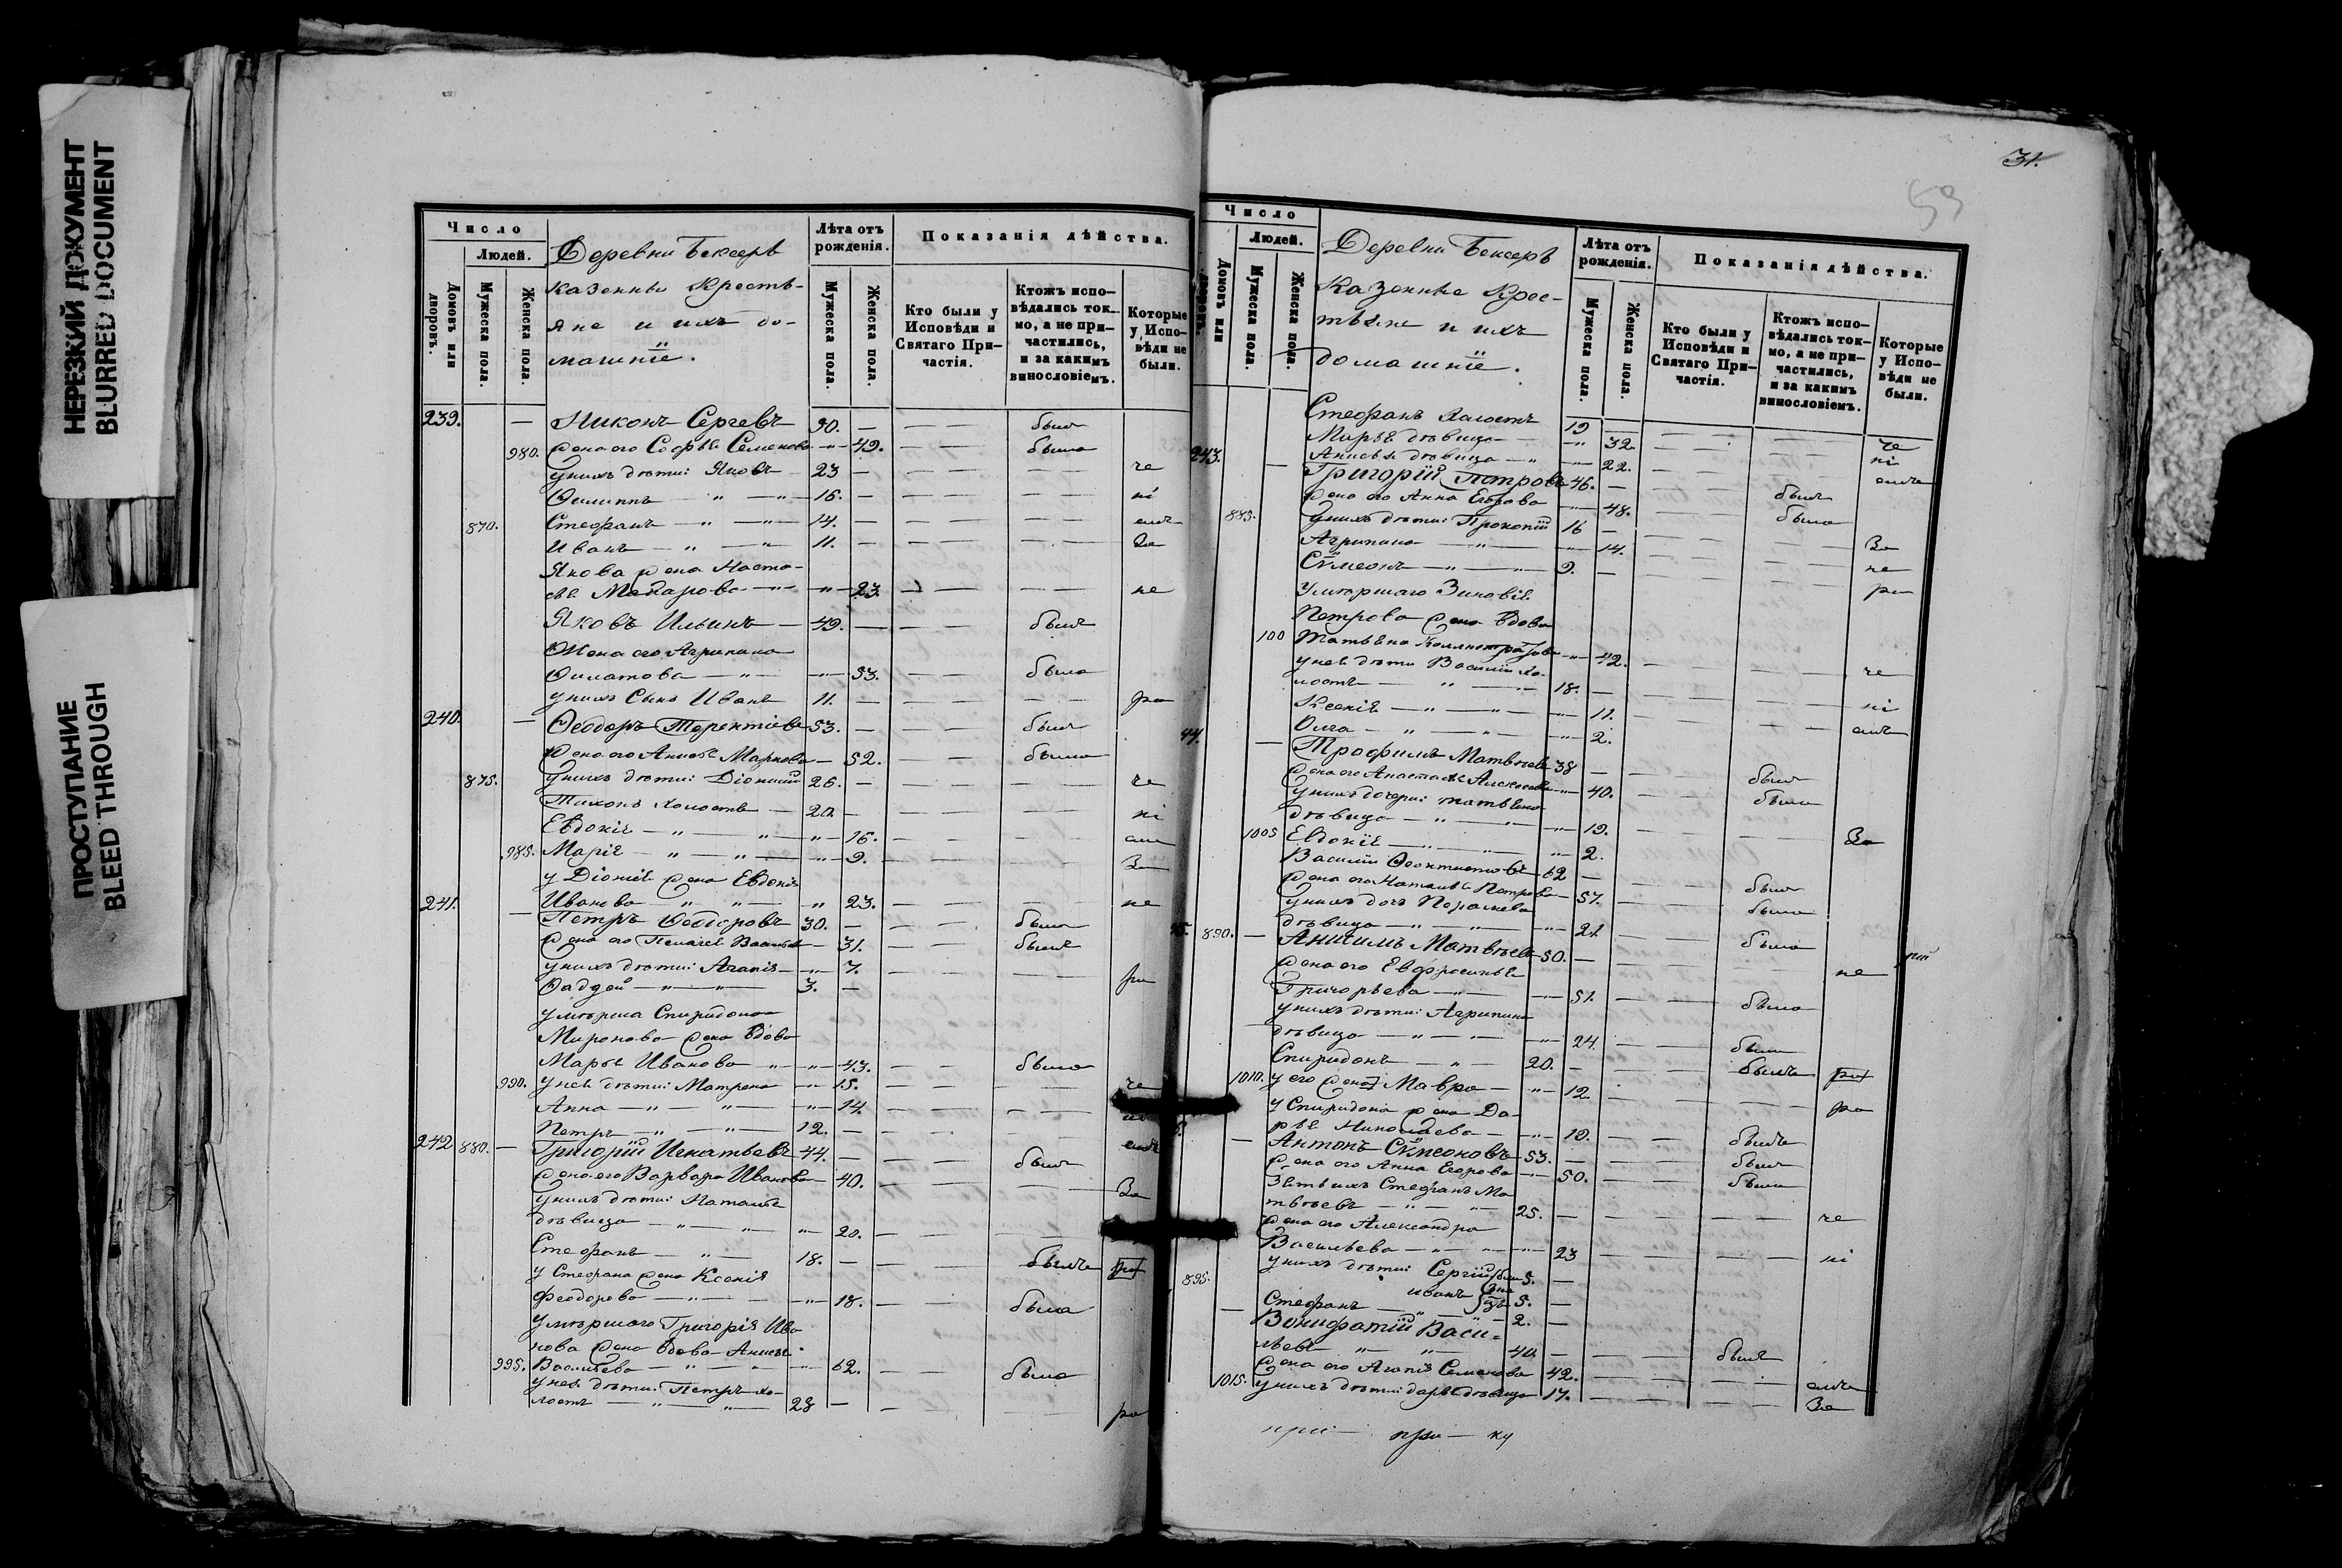 НЕРЕЗКИЙ ДОКУМЕНТ
BLURRED DOCUMENT
ПРОСТУПАНИЕ
BLEED THROUGH
Число
Людей.
Домовъ или дворовъ.
Мужеска пола.
Женска пола.
Деревни Бексеръ
казенны Кресть-
яне и ихъ до-
машнїе.
Лѣта отъ рожденія.
Мужеска пола.
Женска пола.
Показанія дѣйства.
Кто были у Исповѣди и Святаго Причастія.
Ктожъ исповѣдались токмо, а не причастились, и за какимъ винословіемъ.
Которые у Исповѣди не были.
239. — Никонъ Сергевъ — 50. — былъ
980. Жена его Софья Семенова — 49. была
у нихъ дѣти: Яковъ — 23 —
Филиппъ — 16. —
870. Стефанъ — 14. —
Иванъ — 11. —
Якова жена Наста-
Макарова — 23.
Яковъ Ильинъ — 49. — былъ
Жена его Агрипина
Филатова — 53. была
у нихъ сынъ Иванъ 11. —
240. — Феодоръ Терентіевъ 53. — былъ
Жена его Анисья Маркова — 52. была
875. у нихъ дѣти: Діонисій 26. —
Тихонъ холостъ — 20. —
Евдокія — 16.
985. Марія — 9.
у Діонисія жена Евдокія
241. Иванова — 23.
— Петръ Феодоровъ 30. — былъ
Жена его Пелагея — 31. была
у нихъ дѣти: Агапія — 7.
Фаддей — 3. —
умерша Спиридона
Миронова жена вдова
Марья Иванова — 43. была
990. у нея дѣти: Матрена — 15.
Анна — 14.
Петръ — 12. —
242 880. — Григорій Игнатьевъ 44. — былъ
Жена его Варвара Иванова — 40.
у нихъ дѣти: Наталья
дѣвица — 20.
Стефанъ — 18. —
у Стефана жена Ксенія
Феодорова — 18. была
умершаго Григорія Ива-
нова жена вдова Анисья
995. Васильева — 62. была
у нея дѣти: Петръ хо-
лостъ — 28 —
31.
59
Число
Людей.
Домовъ или дворовъ.
Мужеска пола.
Женска пола.
Деревни Бексеръ
Казенные Крес-
тьяне и ихъ
домашнїе.
Лѣта отъ рожденія.
Мужеска пола.
Женска пола.
Показанія дѣйства.
Кто были у Исповѣди и Святаго Причастія.
Ктожъ исповѣдались токмо, а не причастились, и за какимъ винословіемъ.
Которые у Исповѣди не были.
Стефанъ холостъ 19 —
Марья дѣвица — 32.
Анисья дѣвица — 22.
243. — Григорій Петровъ 46. — былъ
Жена его Анна Егорова — 48. была
885. у нихъ дѣти: Прокопій 16 —
Агрипина — 14.
Сѵмеонъ — 9. —
умершаго Зиновія
Петрова жена вдова
100 Татьяна — 42.
у нея дѣти Василій хо-
лостъ — 18. —
Ксенія — 11.
Олга — 2.
44. — Трофимъ Матвѣевъ 38 — былъ
Жена его Анастасья — 40. была
у нихъ дочери: Татьяна
дѣвица — 19.
1005 Евдокія — 2.
Василій Феоктистовъ 62 — былъ
Жена его Наталья Петрова — 57. была
у нихъ дочь Параскева
дѣвица — 21. была
890. — Анисимъ Матвѣевъ 50. —
Жена его Евфросинья
Григорьева — 51. была
у нихъ дѣти: Агрипина
дѣвица — 24. была
Спиридонъ — 20. — былъ
1010. у его жена Мавра — 12.
у Спиридона жена Да-
рья Николаева — 19. была
— Антонъ Сѵмеоновъ 53. — былъ
Жена его Анна Егорова — 50. была
Зять ихъ Стефанъ Ма-
твѣевъ — 25. —
Жена его Александра
Васильева — 23
895. у нихъ дѣти: Сергій 5. —
Иванъ 5. —
Стефанъ — 2. —
— Вонифатій Васи-
льевъ — 40. — былъ
Жена его Агапія Семенова 42.
1015. у нихъ дѣти: Дарья дѣвица 17.